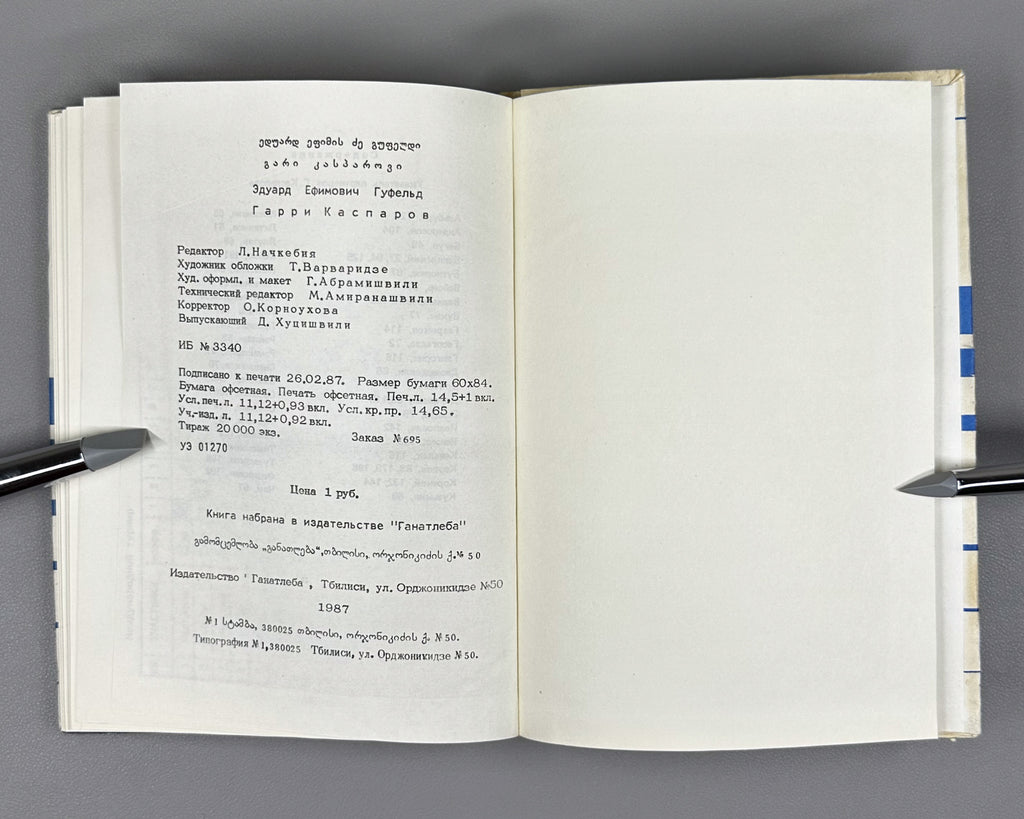 ედუარდ ეფიმის ძე გუფელდი
გარი კასპაროვი
Эдуард Ефимович Гуфельд
Гарри Каспаров
Редактор Л.Начкебия
Художник обложки Т.Варваридзе
Худ. оформл. и макет Г.Абрамишвили
Технический редактор М.Амиранашвили
Корректор О.Корноухова
Выпускающий Д. Хуцишвили
ИБ №3340
Подписано к печати 26.02.87. Размер бумаги 60х84.
Бумага офсетная. Печать офсетная. Печ.л. 14,5+1 вкл.
Усл.печ.л. 11,12+0,93 вкл. Усл. кр. пр. 14,65.
Уч.-изд. л. 11,12+0,92 вкл.
Тираж 20 000 экз. Заказ №695
УЭ 01270
Цена 1 руб.
Книга набрана в издательстве "Ганатлеба"
გამომცემლობა „განათლება“, თბილისი, ორჯონიკიძის ქ.№ 50
Издательство ' Ганатлеба , Тбилиси, ул. Орджоникидзе №50
1987
№1 სტამბა, 380025 თბილისი, ორჯონიკიძის ქ. №50.
Типография №1,380025 Тбилиси, ул. Орджоникидзе №50.